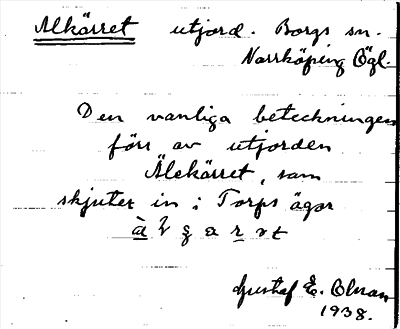 Alkärret utjord. Borgs sn.
Norrköping Ögl.
Den vanliga beteckningen
förr av utjorden
Älekärret, som
skjuter in i Torps ägor
Gustaf E. Olson
1938.